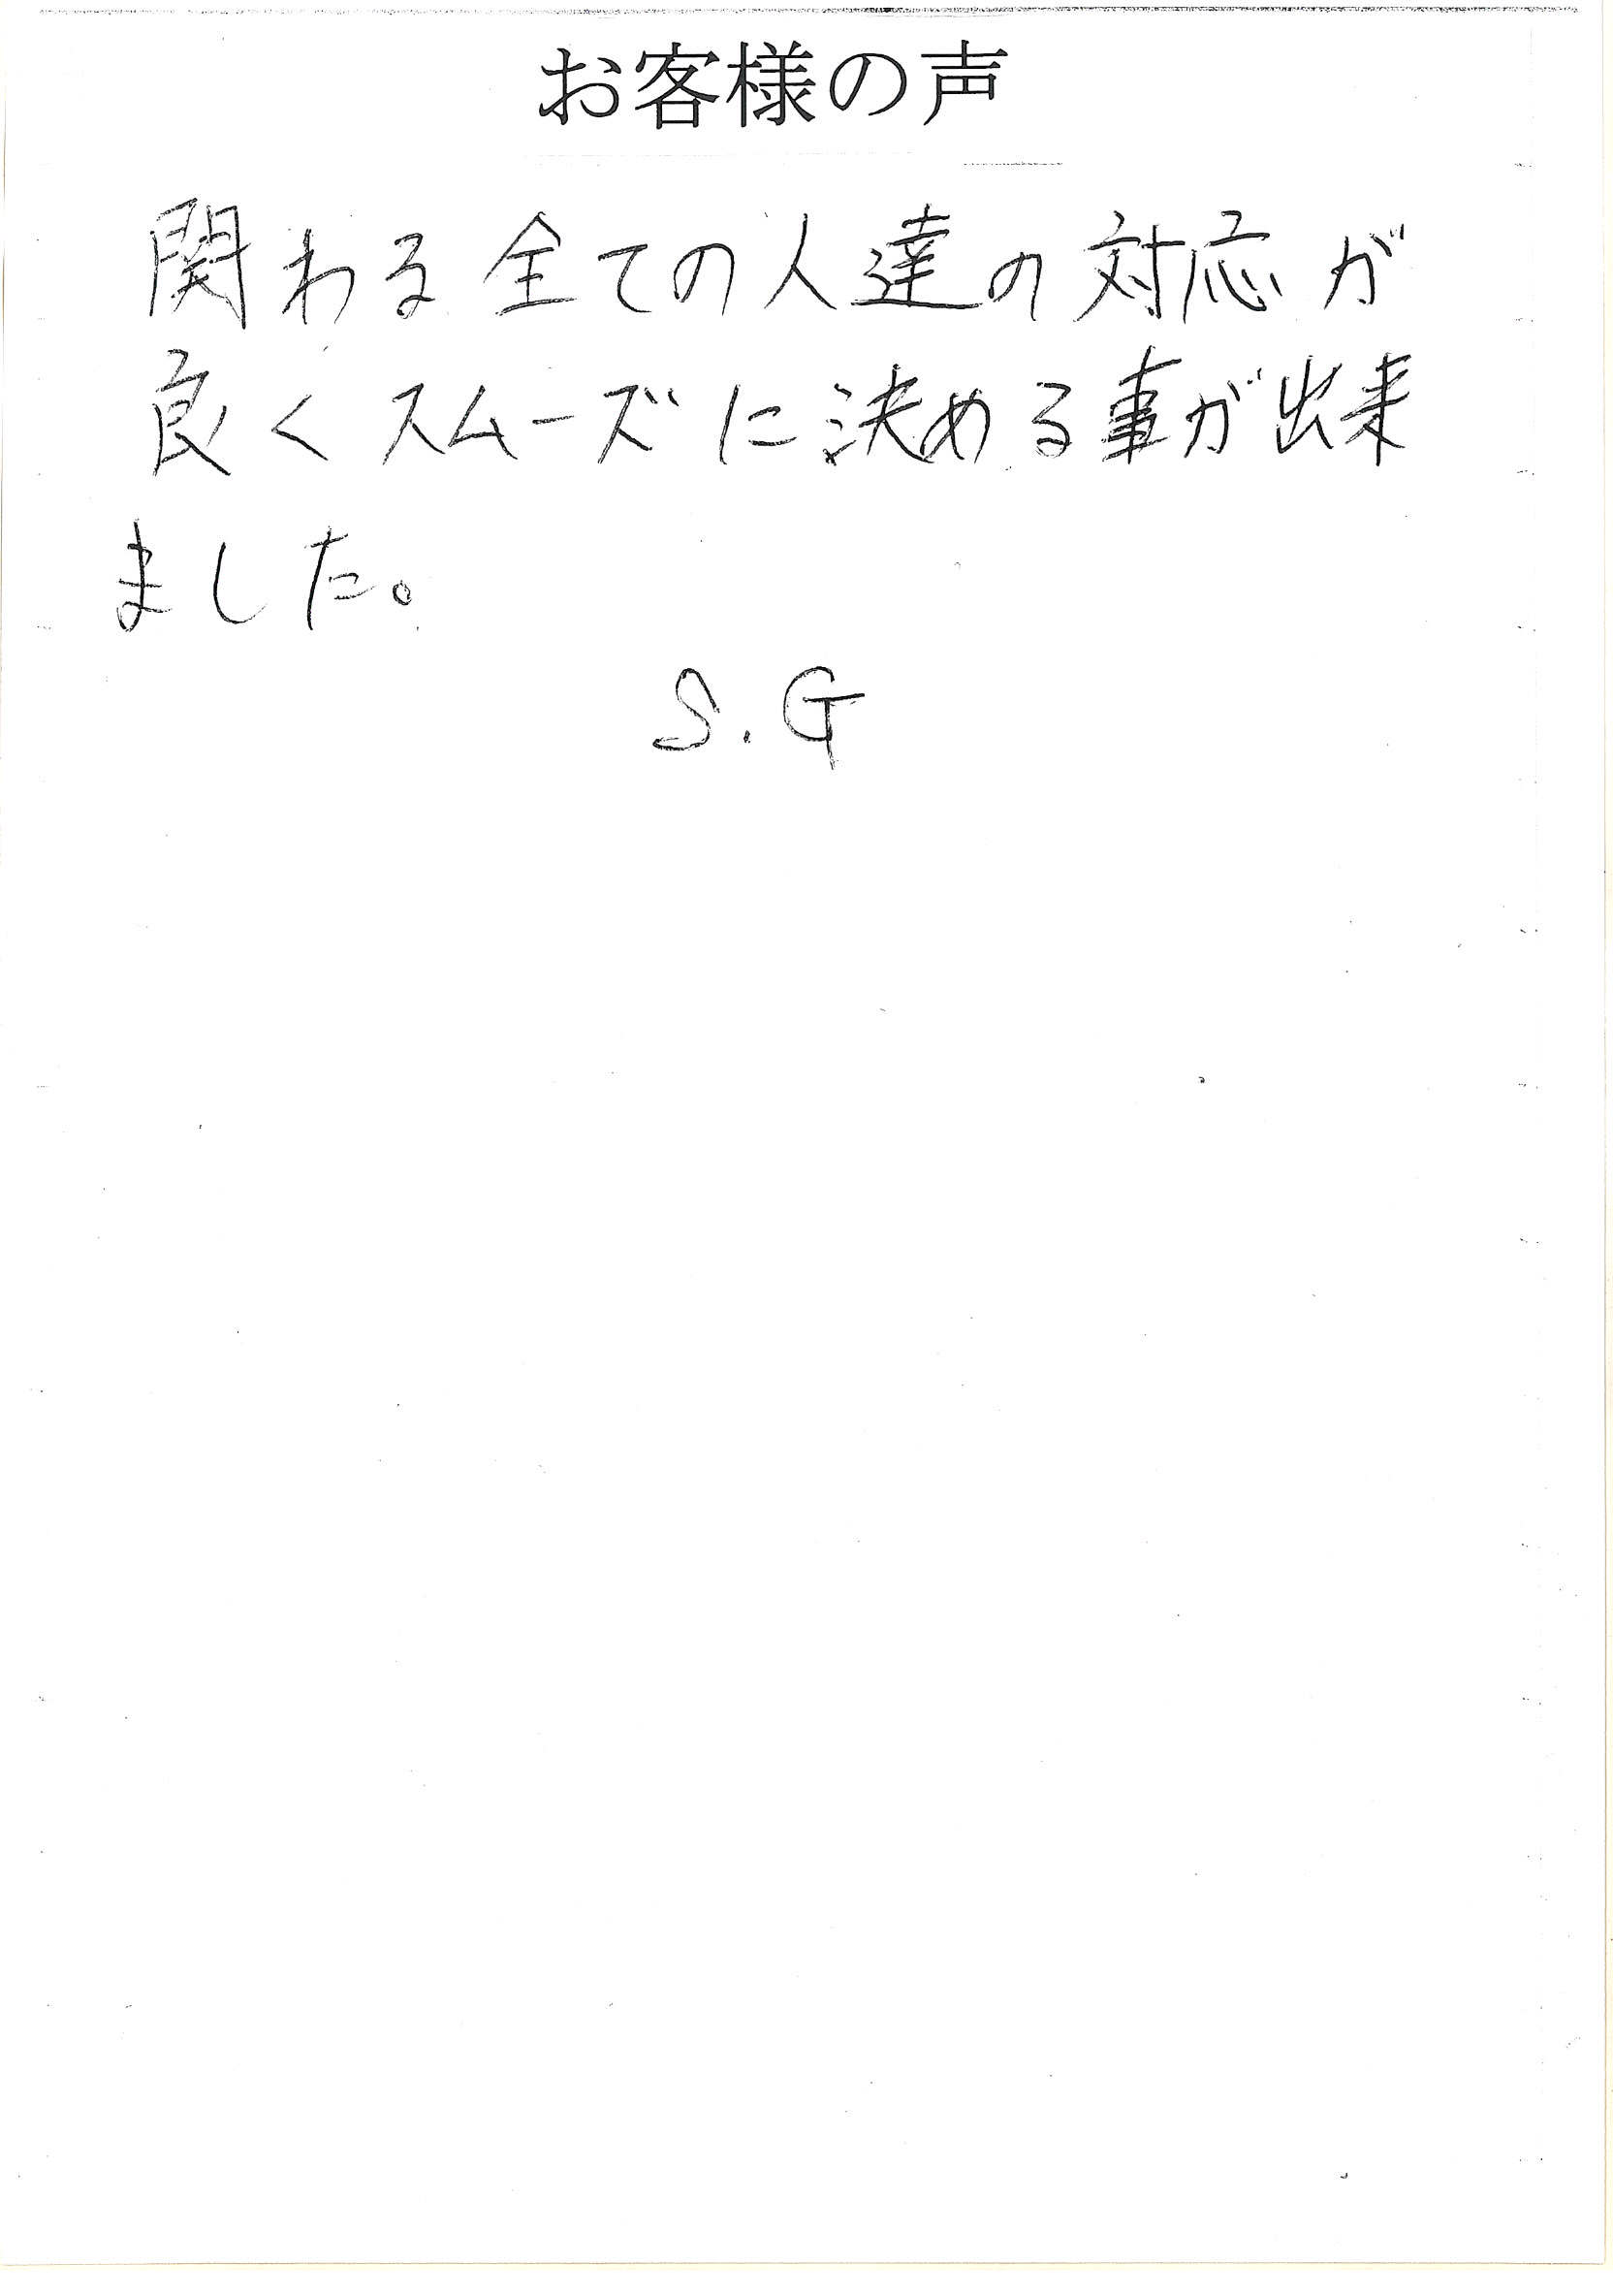 お客様の声
関わる全ての人達の対応が
良くスムーズに決める事が出来
ました。
S.G